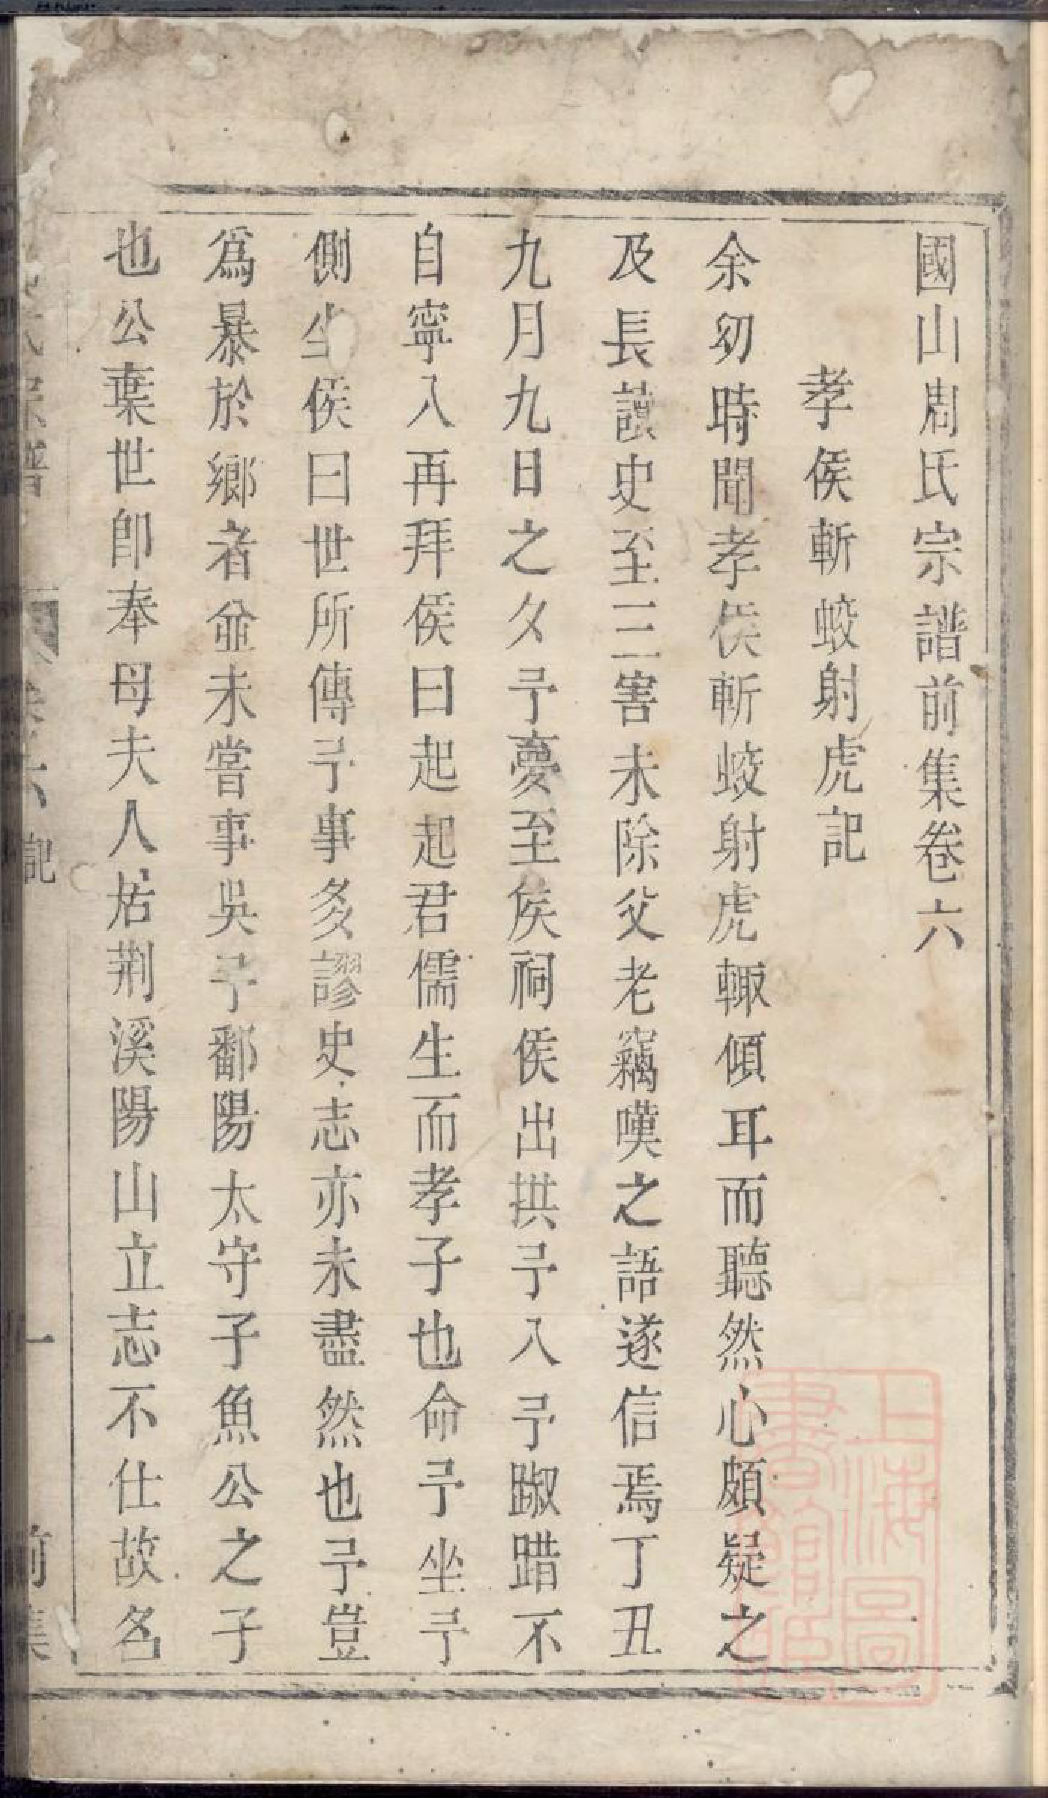 國山周氏宗譜前集卷六
孝侯斬蛟射虎記
余幼時聞孝侯斬蛟射虎輙傾耳而聽然心頗疑之
及長讀史至三害未除父老竊嘆之語遂信焉丁丑
九月九日之夕予夢至侯祠侯出拱予入予踧踖不
自寧入再拜侯曰起起君儒生而孝子也命予坐予
側坐侯曰世所傳予事多謬史志亦未盡然也予豈
為暴於鄉者並未嘗事吳予鄱陽太守子魚公之子
也公棄世卽奉母夫人居荆溪陽山立志不仕故名
宗譜
卷六 記
一
前集
上海圖書館藏